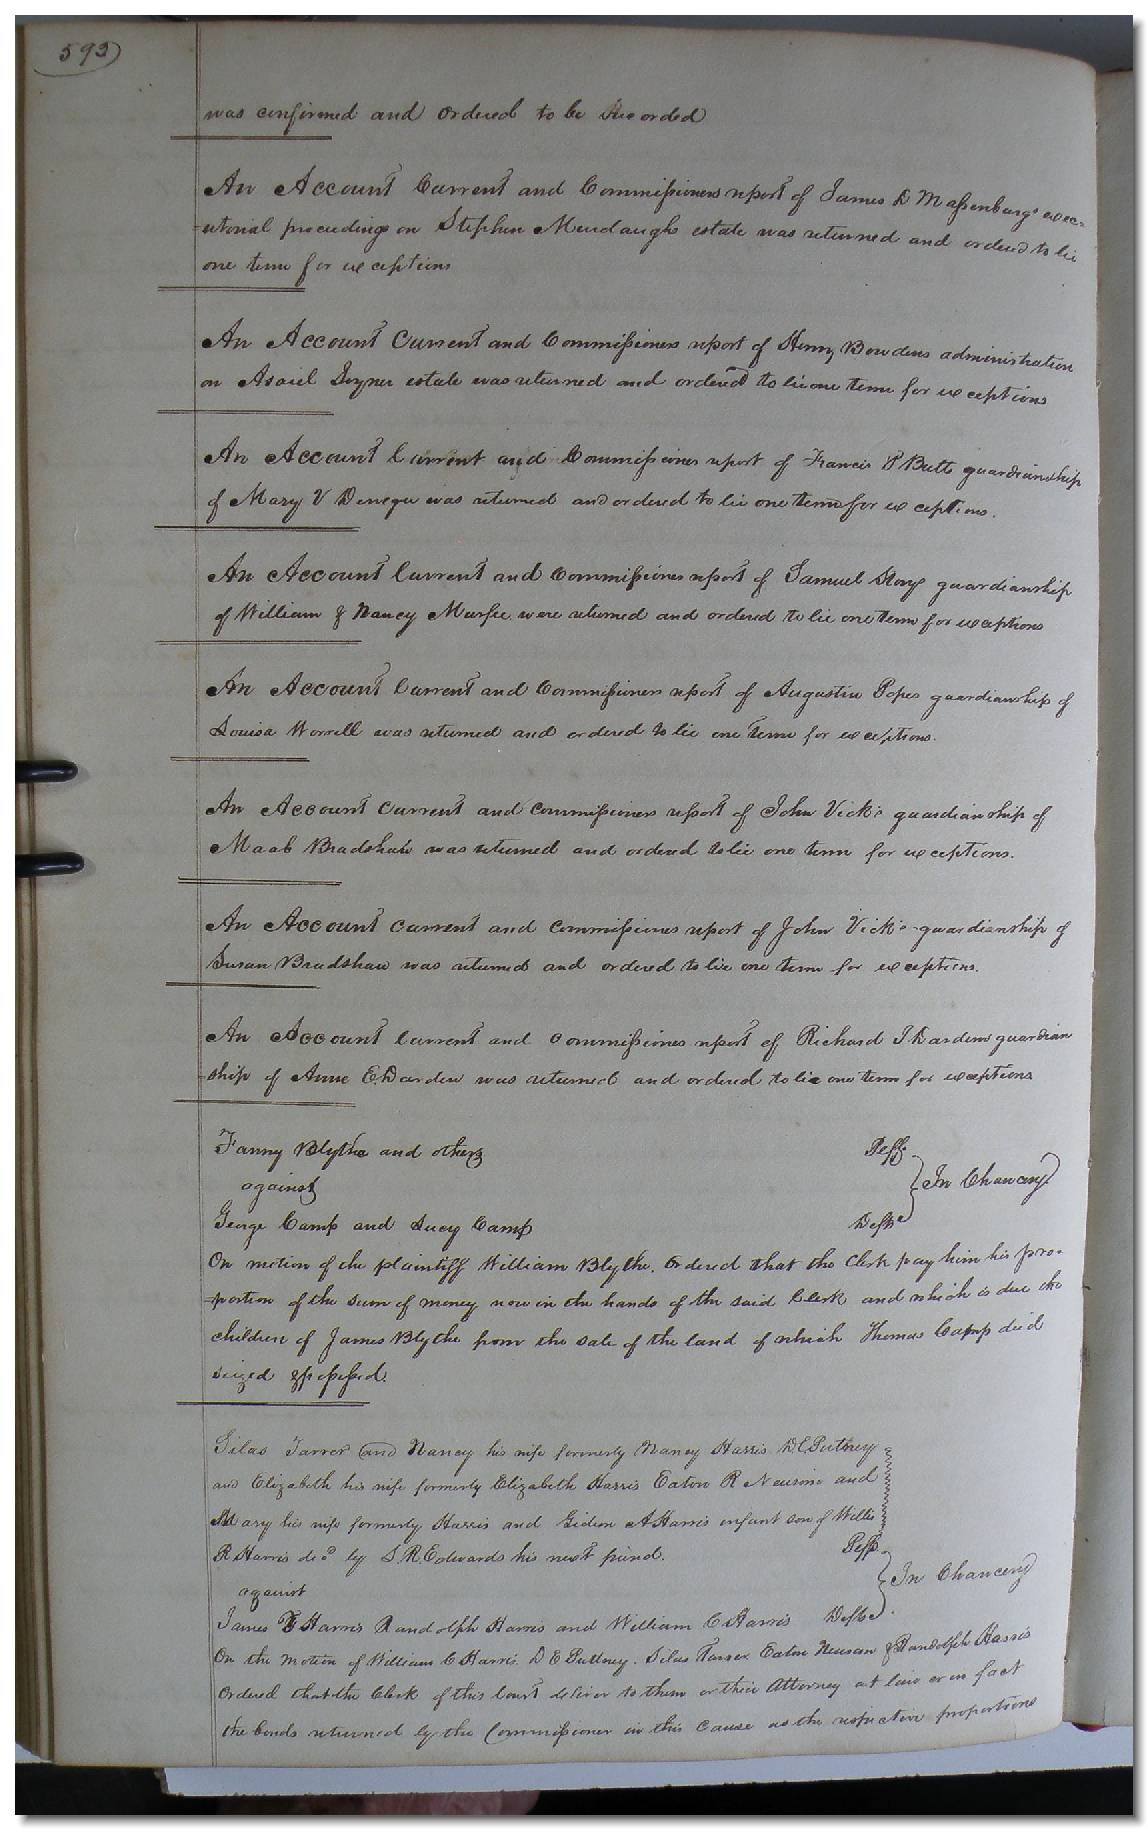 592
was confirmed and ordered to be Recorded
An Account Current and Commissioners report of James D Massenburgs exec-
-utorial proceedings on Stephen Murdaughs estate was returned and ordered to lie
one term for exceptions
An Account Current and Commissioners report of Henry Bowdens administration
on Asaiel Joyner estate was returned and ordered to lie one term for exceptions
An Account Current and Commissiones report of Francis P Butts guardianship
of Mary V was returned and ordered to lie one term for exceptions.
An Account Current and Commissiones report of Samuel Storys guardianship
of William & Nancy Murfee were returned and ordered to lie one term for exceptions
An Account Current and Commissioners report of Augustin Popes guardianship of
Louisa Worrell was returned and ordered to lie one term for exceptions.
An Account current and commissioners report of John Vick's guardianship of
Maab Bradshaw was returned and ordered to lie one term for exceptions.
An Account current and commissiones report of John Vick's guardianship of
Susan Bradshaw was returned and ordered to lie one term for exceptions.
An Account Current and commissiones report of Richard J Dardens guardian
-ship of Anne E. Darden was returned and ordered to lie one term for exceptions
Fanny Blythe and others Peffs.
against } In Chancery
George Camp and Lucy Camp Defts
On motion of the plaintiff William Blythe. Ordered that the Clerk pay him his pro-
-portion of the sum of money now in the hands of the said Clerk and which is due the
children of James Blythe from the sale of the land of which Thomas Camp died
seized & possessed.
Silas Tarver and Nancy his wife formerly Nancy Harris D C Puttney
and Elizabeth his wife formerly Elizabeth Harris Eaton R Newsom and
Mary his wife formerly Harris and Gideon A Harris infant son of Willis
R Harris decd by S. R. Edwards his next friend. Peffs.
against } In Chancery
James E Harris Randolph Harris and William C Harris Defts
On the Motion of William C Harris. D C Puttney. Silas Tarver Eaton Newsan & Randolph Harris
Ordered that the Clerk of this Court deliver to them or their Attorney at law or in fact
the bonds returned by the Commissioner in this Cause as the respective proportions